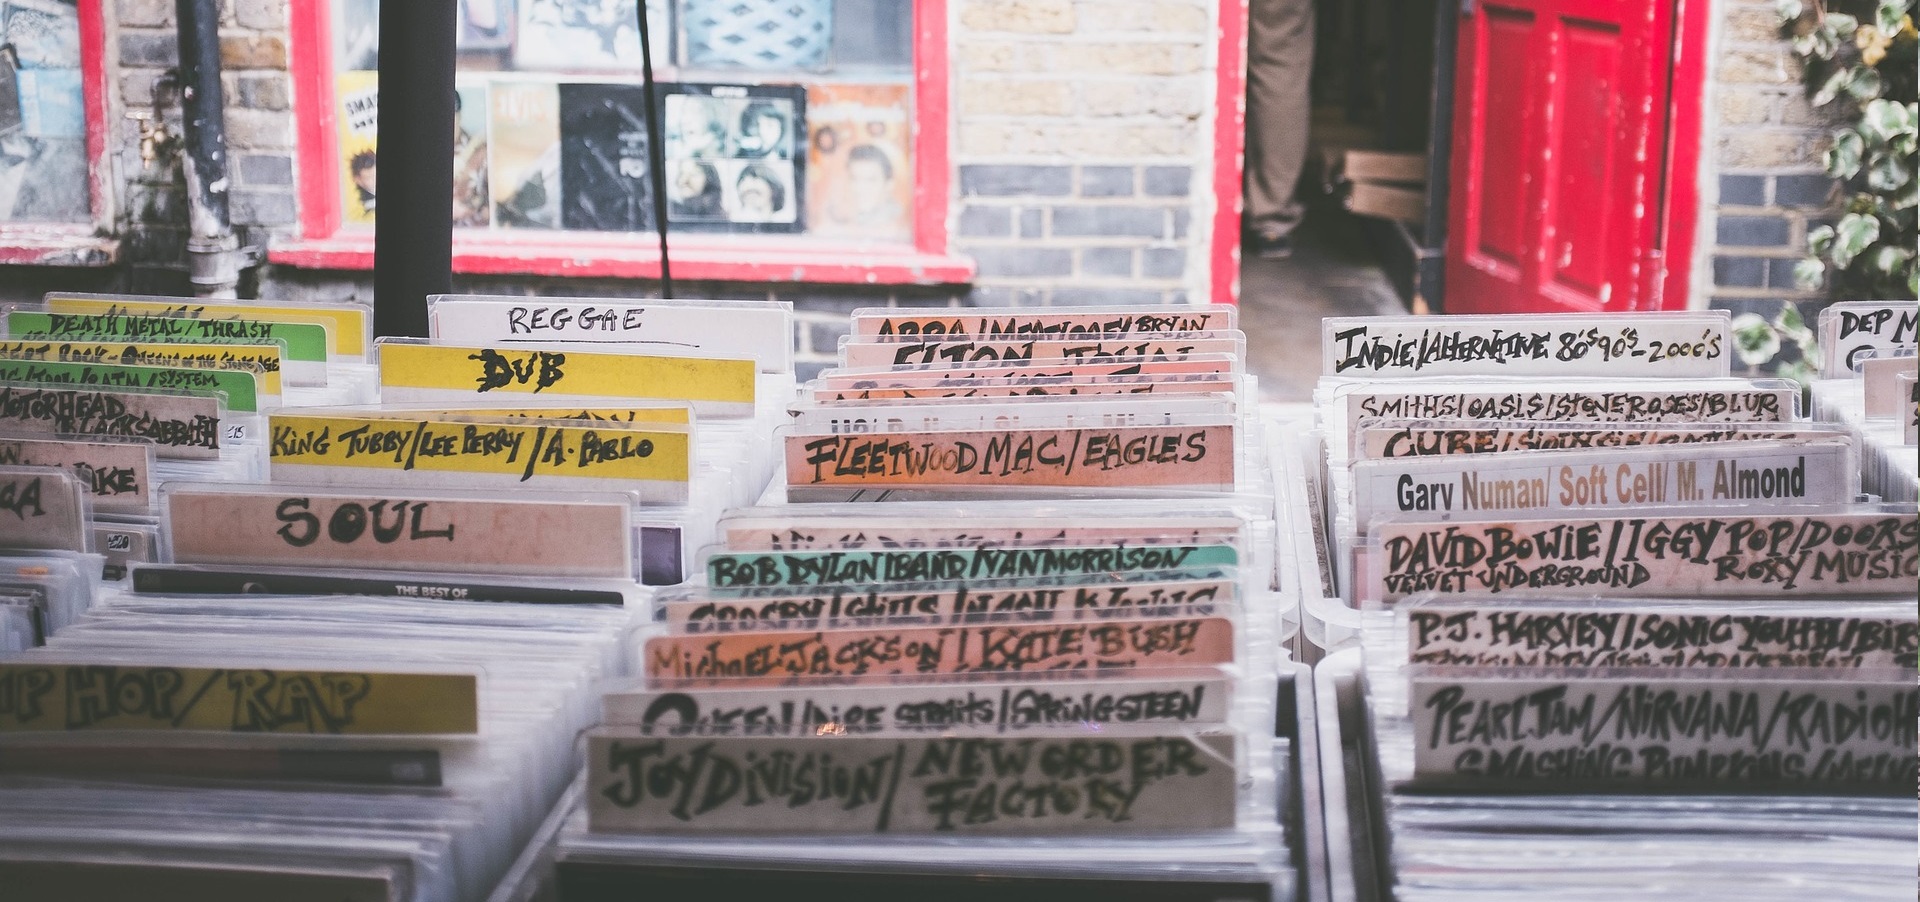 DEATH METAL / THRASH
QUEENS OF THE STONE AGE
/TOOL/RATM/SYSTEM
MOTORHEAD
BLACK SABBATH
REGGAE
DUB
KING TUBBY/LEE PERRY/A.PABLO
SOUL
THE BEST OF
HOP/RAP
ABBA/MEATLOAF/BRYAN
ELTON JOHN
FLEETWOOD MAC/EAGLES
BOB DYLAN/BAND/VAN MORRISON
MICHAEL JACKSON / KATE BUSH
QUEEN/DIRE STRAITS/SPRINGSTEEN
JOY DIVISION/ NEW ORDER
FACTORY
INDIE/ALTERNATIVE 80'S 90'S-2000'S
SMITHS/OASIS/STONE ROSES/BLUR
Gary Numan/ Soft Cell/ M. Almond
DAVID BOWIE/IGGY POP/DOORS
VELVET UNDERGROUND ROXY MUSIC
P.J. HARVEY/SONIC YOUTH/
PEARL JAM/NIRVANA/RADIOH
SMASHING PUMPKINS/
DEP M